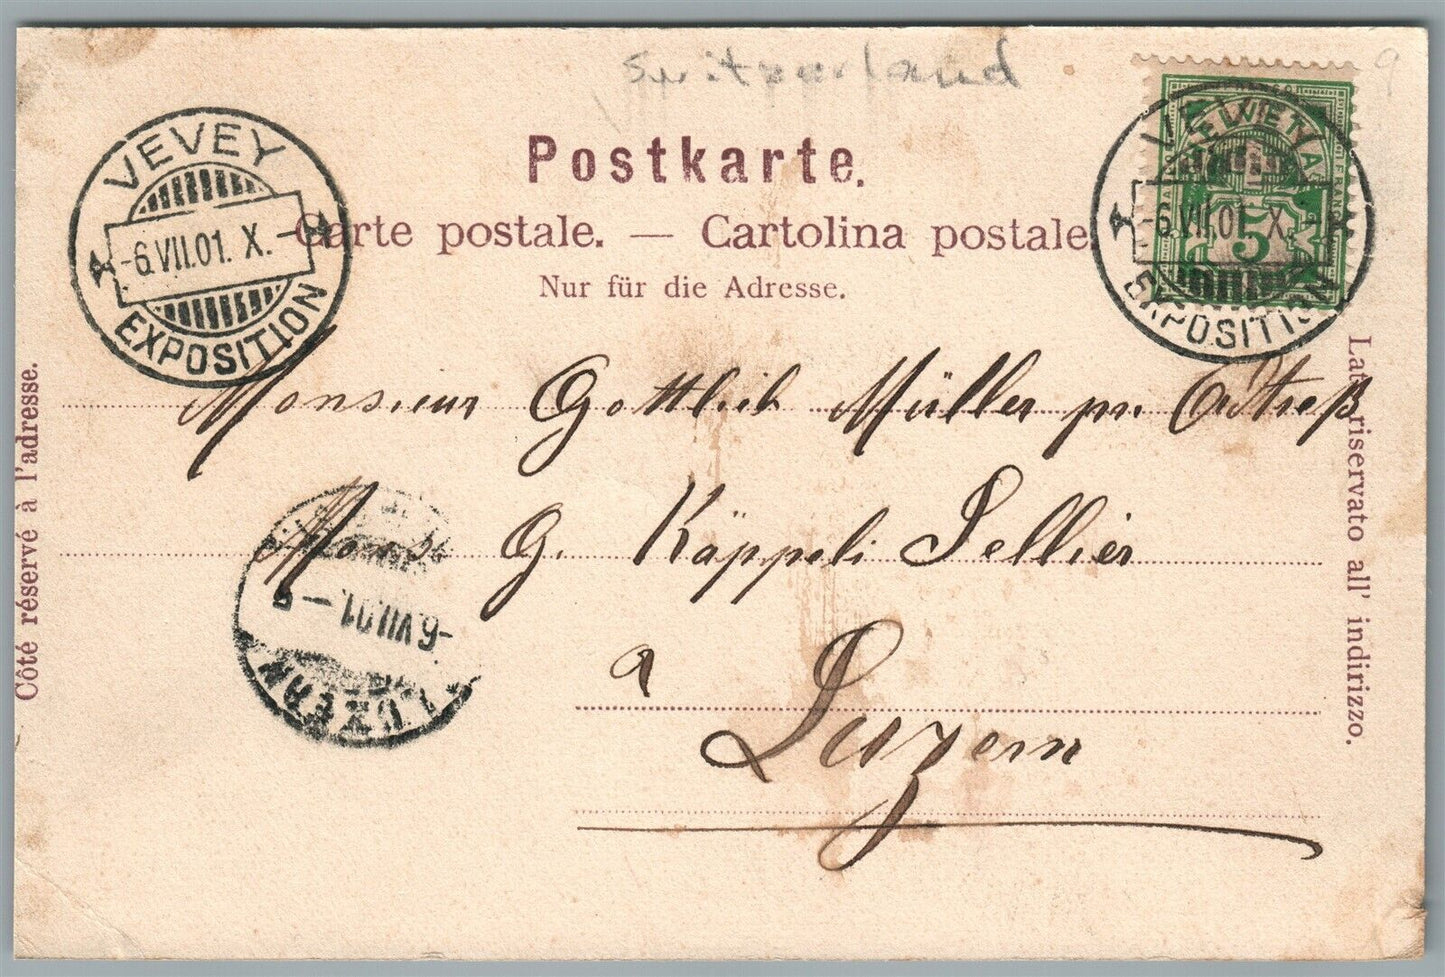 Switzerland
9
Postkarte.
Carte postale. — Cartolina postale.
Nur für die Adresse.
VEVEY
-6.VII.01. X.-
EXPOSITION
HELVETIA
5
VEVEY
-6.VII.01. X.-
EXPOSITION
Côté réservé à l'adresse.
Lato riservato all' indirizzo.
Monsieur Gottlieb Müller pr. Adreß
Mons G. Käppeli Sellier
à
Luzern
-6.VII.01.-
LUZERN